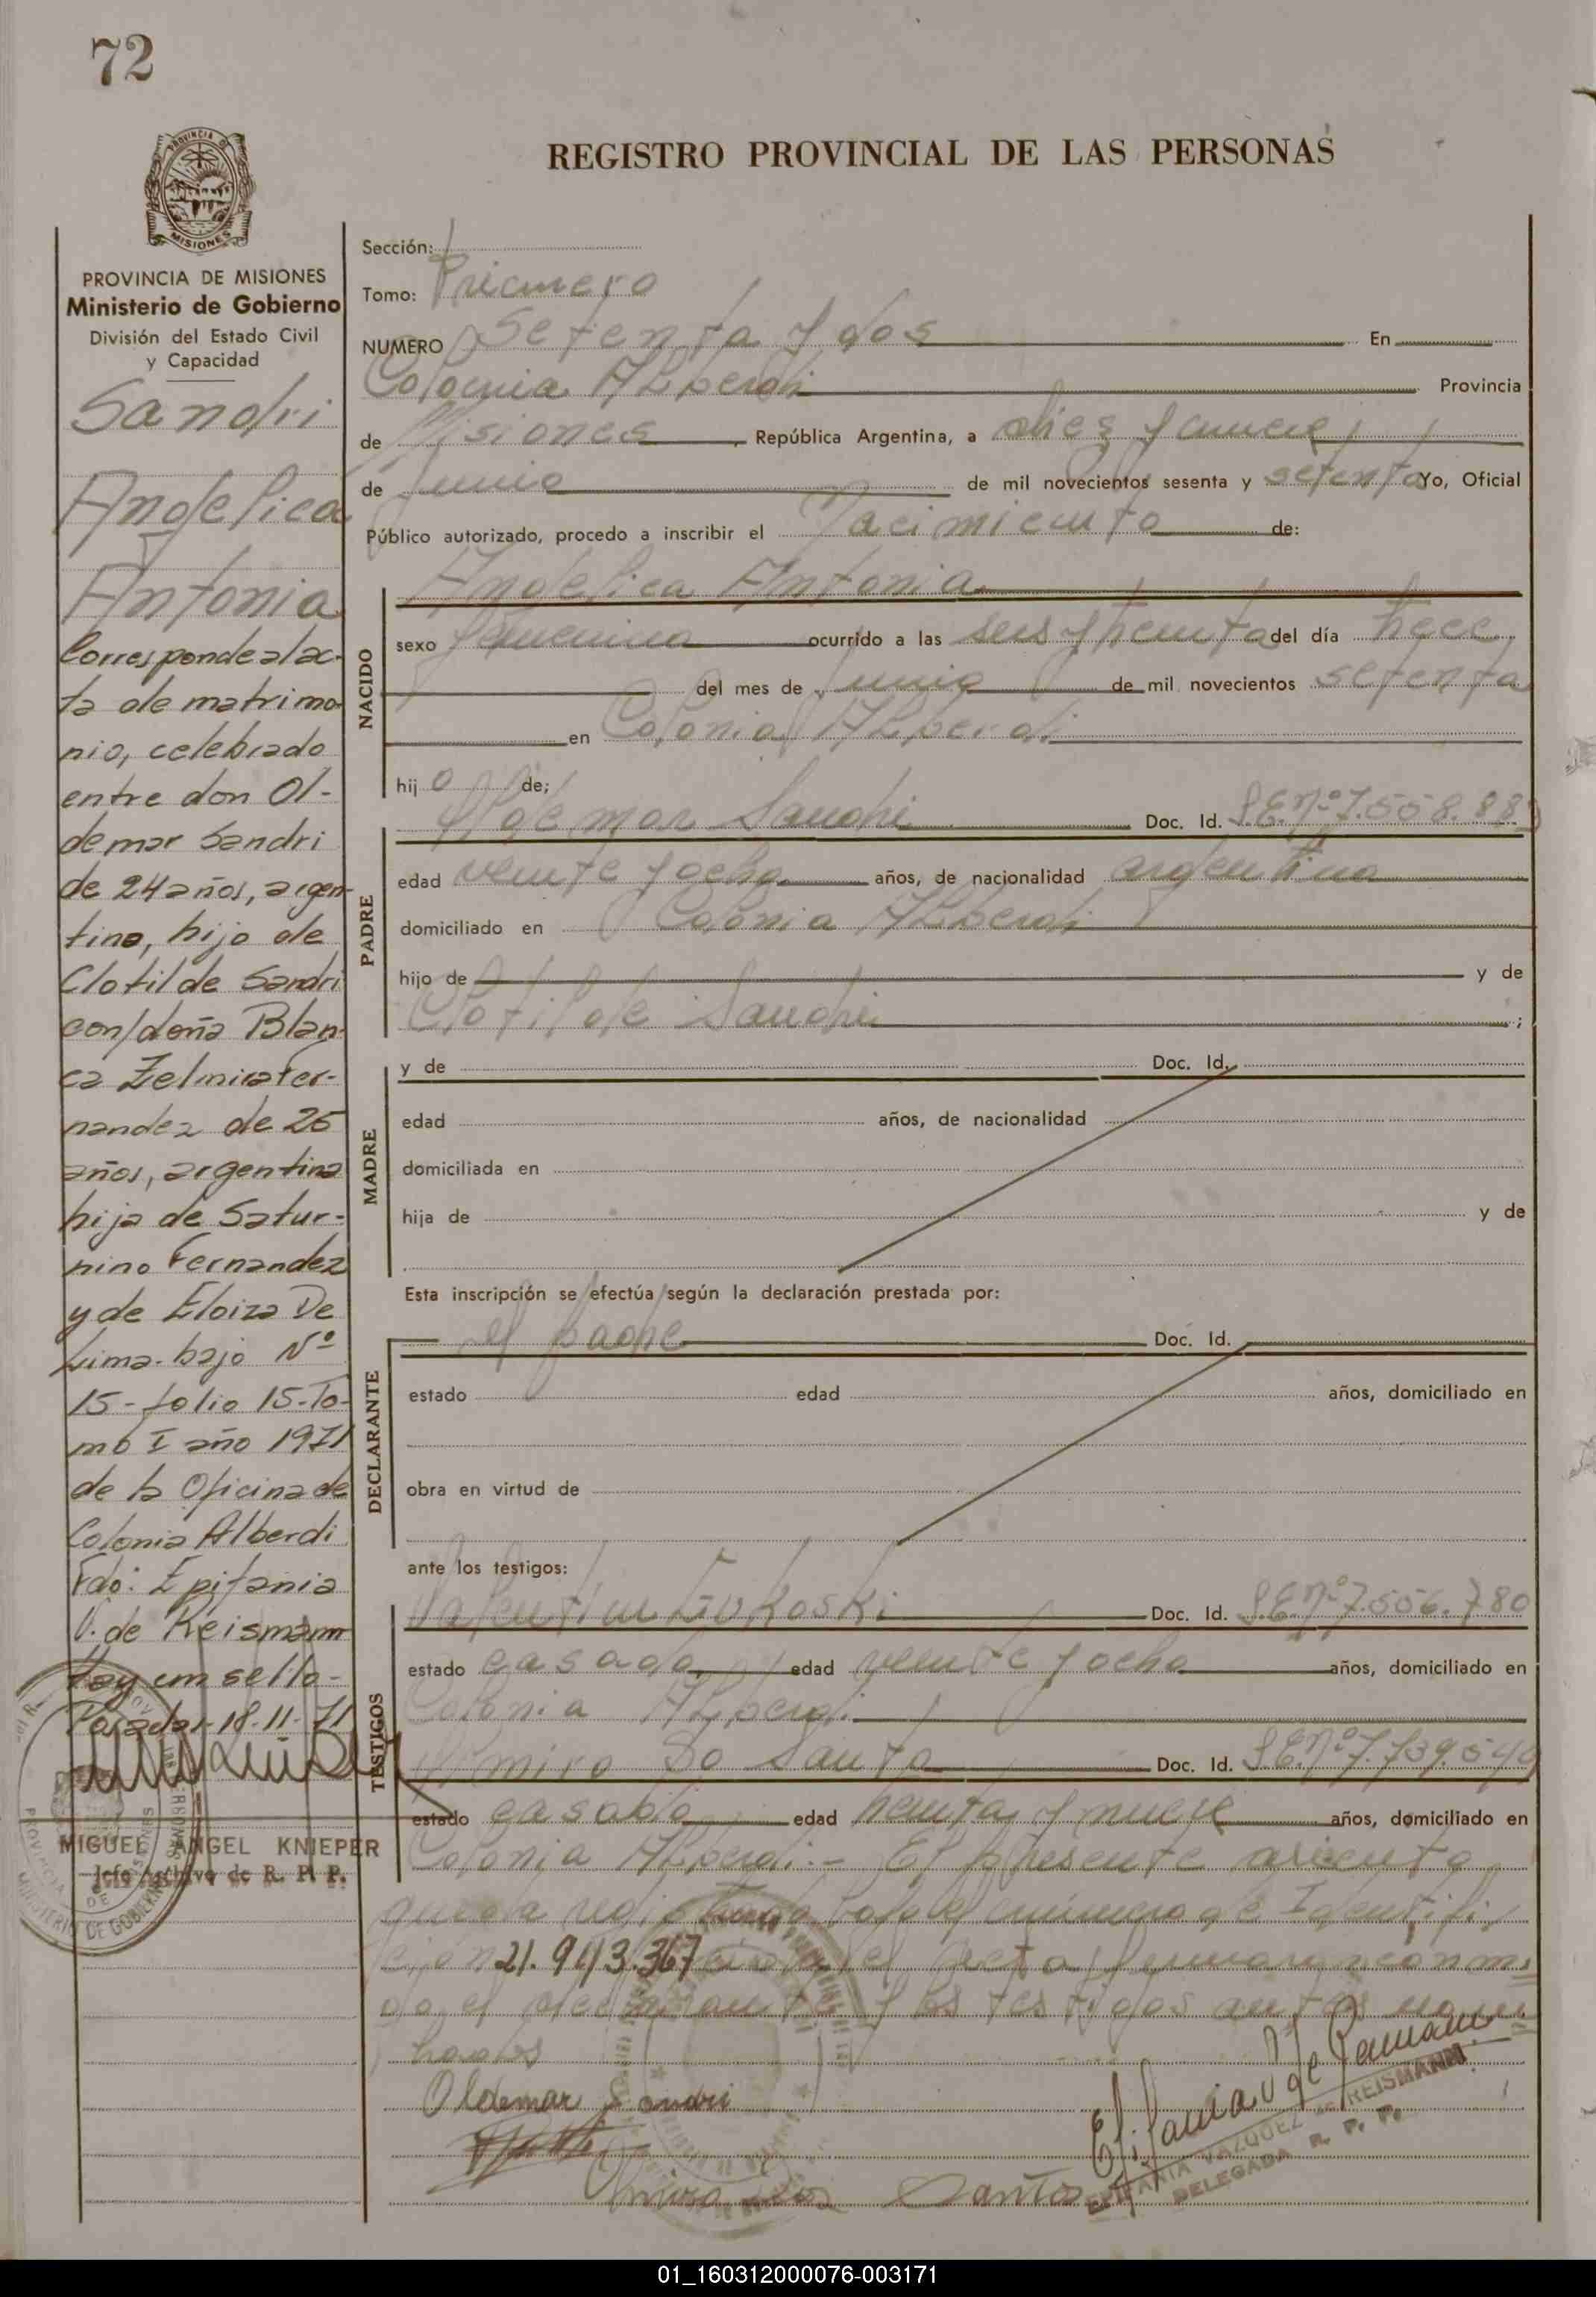 72
PROVINCIA DE
MISIONES
REGISTRO PROVINCIAL DE LAS PERSONAS
PROVINCIA DE MISIONES
Ministerio de Gobierno
División del Estado Civil
y Capacidad
Sandri
Angelica
Antonia
Corresponde al ac-
ta de matrimo
nio, celebrado
entre don Ol-
demar Sandri
de 24 años, argen-
tino, hijo de
Clotilde Sandri
con/doña Blan-
ca Zelmira Fer-
nandez de 25
años, argentina
hija de Satur-
nino Fernandez
y de Eloiza De
Lima. bajo Nº
15 - folio 15 - To-
mo I año 1971
de la Oficina de
Colonia Alberdi
Fdo: Epifania
V. de Reismann
Hay un sello -
Posadas - 18-11-71
MIGUEL ANGEL KNIEPER
Jefe Archivo de R. P. P.
Sección:
Tomo: Primero
NUMERO Setenta y dos En
Colonia Alberdi Provincia
de Misiones, República Argentina, a diez y nueve
de Junio de mil novecientos sesenta y setenta Yo, Oficial
Público autorizado, procedo a inscribir el Nacimiento de:
NACIDO
Angelica Antonia
sexo femenino ocurrido a las seis y treinta del día trece
del mes de Junio de mil novecientos setenta
en Colonia Alberdi
hij a de;
PADRE
Oldemar Sandri Doc. Id. L.E.Nº 7.558.88
edad veinte y ocho años, de nacionalidad argentina
domiciliado en Colonia Alberdi
hijo de y de
Clotilde Sandri ;
MADRE
y de Doc. Id.
edad años, de nacionalidad
domiciliada en
hija de y de
Esta inscripción se efectúa según la declaración prestada por:
DECLARANTE
el padre Doc. Id.
estado edad años, domiciliado en
obra en virtud de
ante los testigos:
TESTIGOS
Valentin Doc. Id. L.E.Nº 7.556.780
estado casado edad veinte y ocho años, domiciliado en
Colonia Alberdi
Doc. Id. L.E.Nº 7.739.549
estado casado edad treinta y nueve años, domiciliado en
Colonia Alberdi.- El presente asiento
queda registrado bajo el número de Identifi
ción 21.943.367 el acta firmaron conmi
go el declarante y los testigos antes nom
brados
Oldemar Sandri
Santos
Epifania V de Reismann
EPIFANIA VAZQUEZ de REISMANN
DELEGADA R. P. P.
01_160312000076-003171